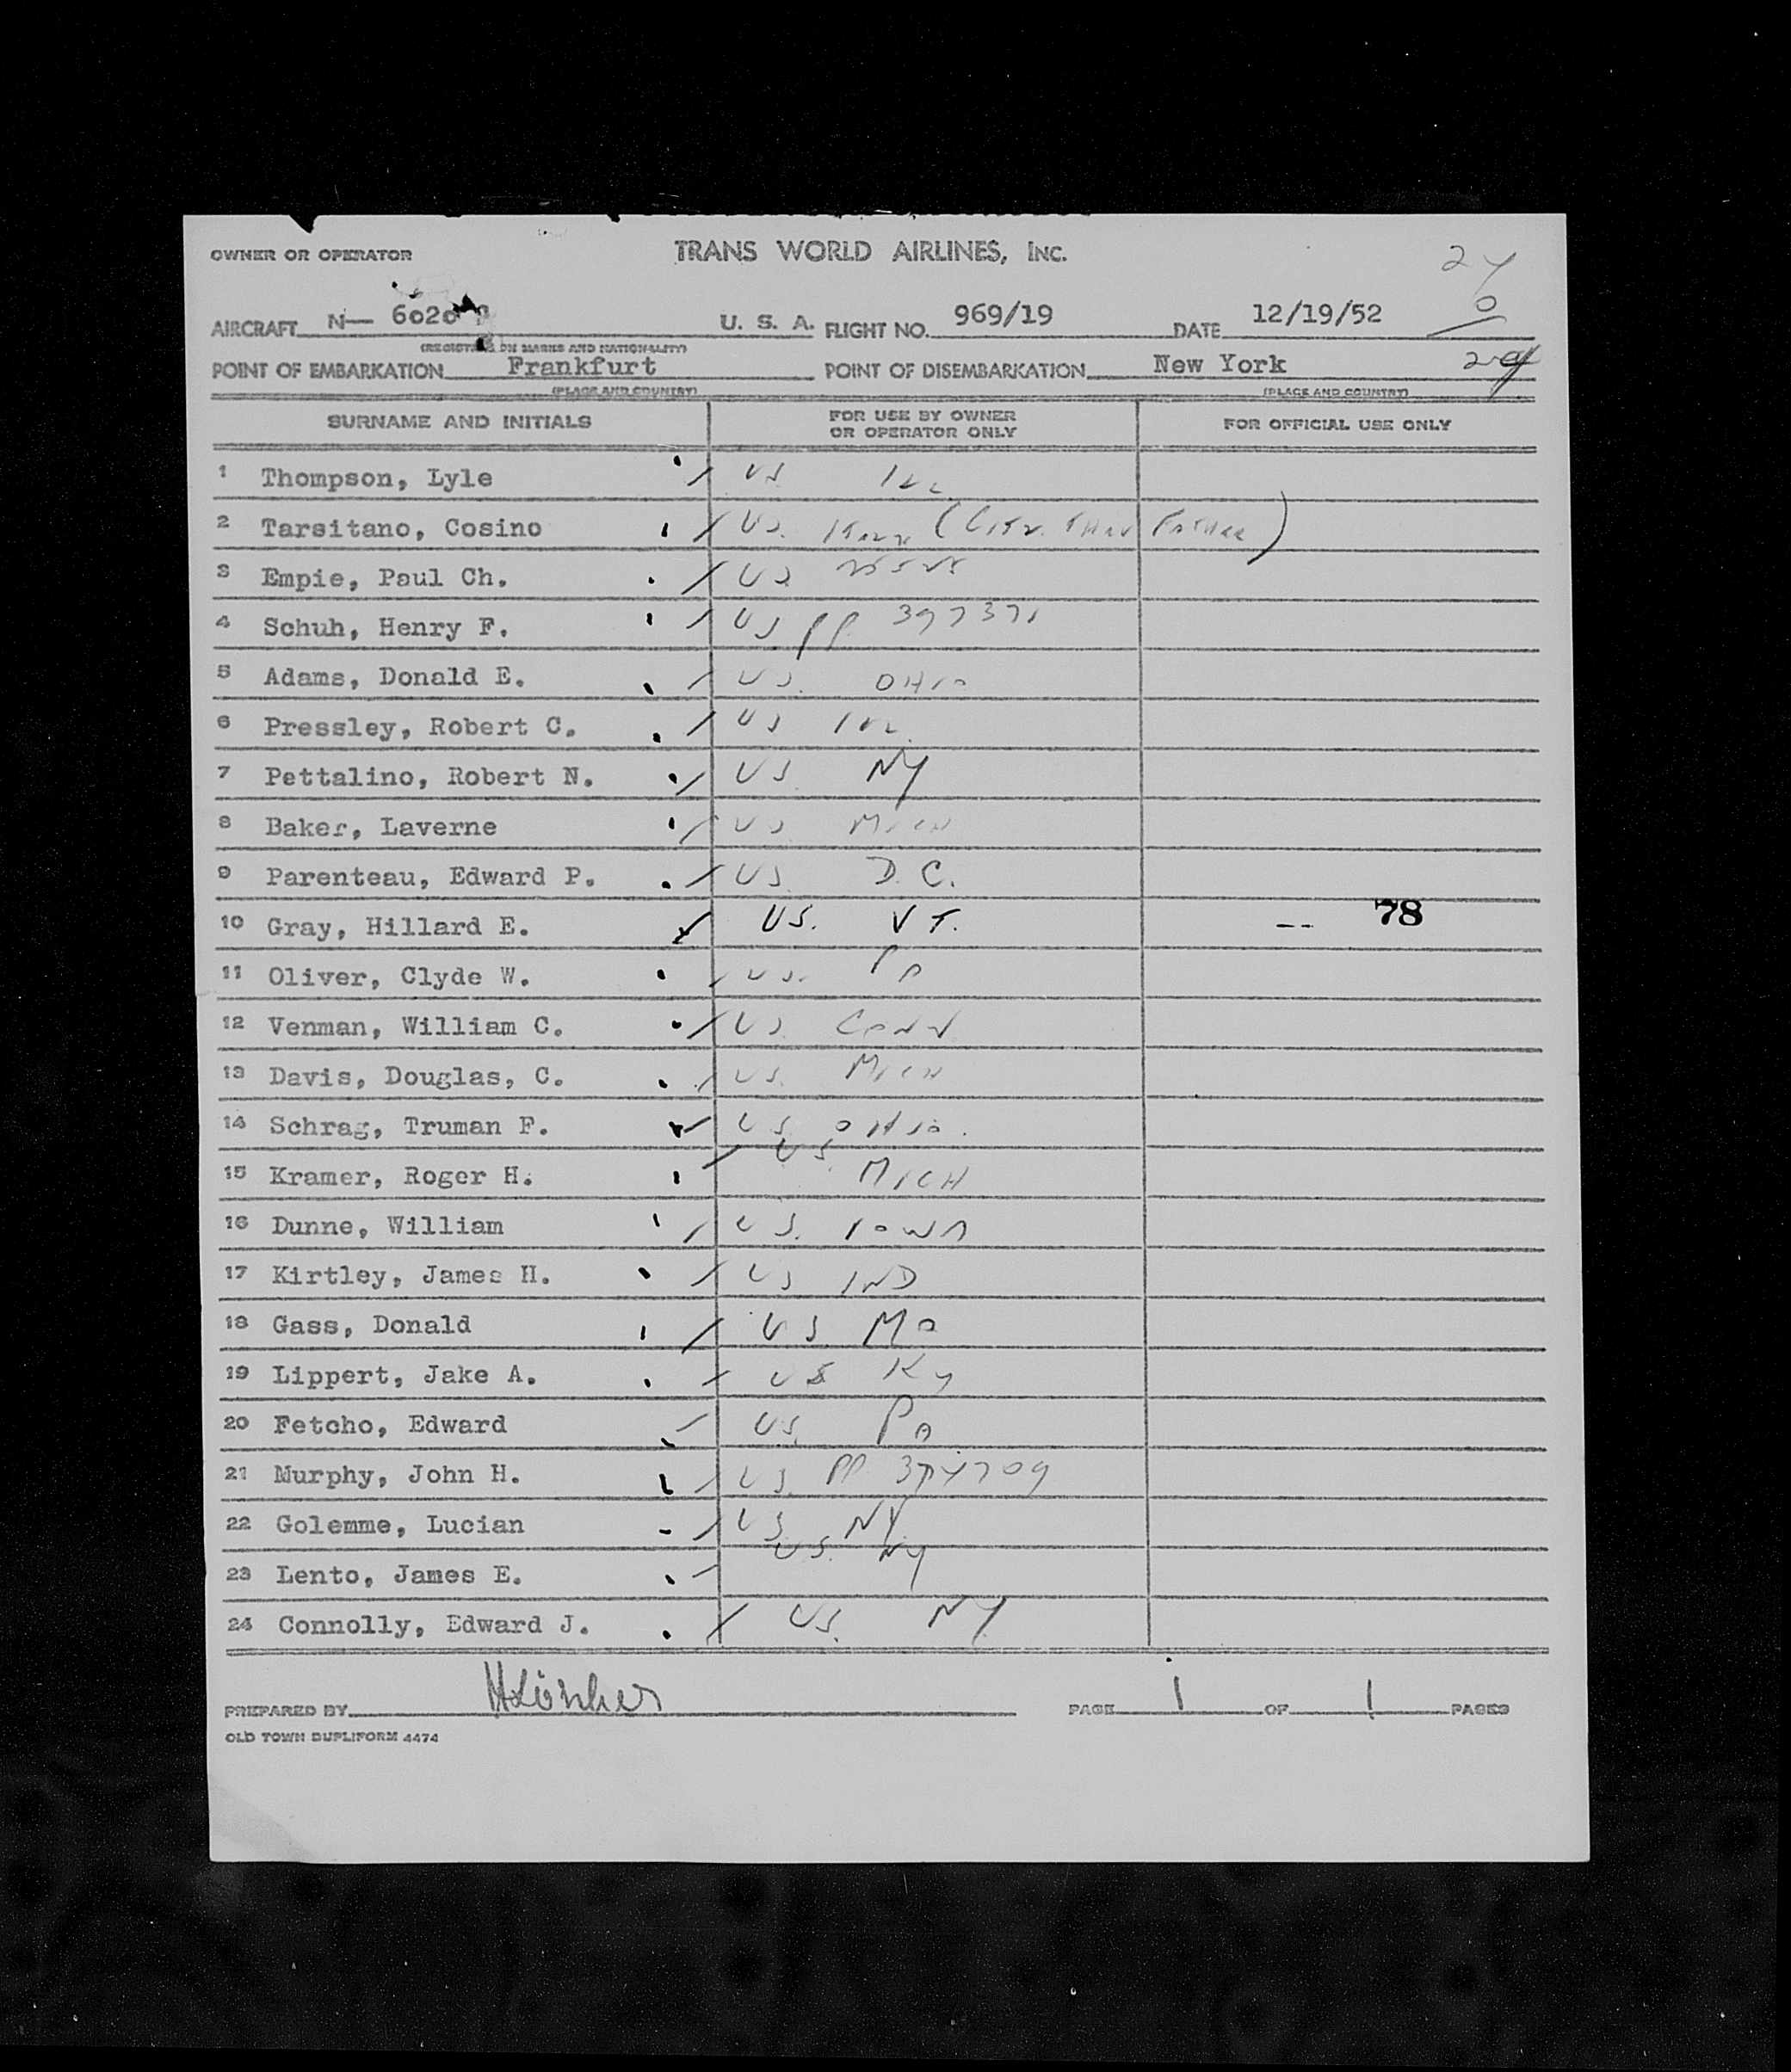 OWNER OR OPERATOR TRANS WORLD AIRLINES, INC. 24
AIRCRAFT N— 6020 U. S. A. FLIGHT NO. 969/19 DATE 12/19/52 0
(REGISTRATION MARKS AND NATIONALITY)
POINT OF EMBARKATION Frankfurt POINT OF DISEMBARKATION New York 24
(PLACE AND COUNTRY) (PLACE AND COUNTRY)
SURNAME AND INITIALS FOR USE BY OWNER OR OPERATOR ONLY FOR OFFICIAL USE ONLY
1 Thompson, Lyle US ILL
2 Tarsitano, Cosino US. ITALY (CITZ. THRU FATHER)
3 Empie, Paul Ch. US
4 Schuh, Henry F. US PP 397371
5 Adams, Donald E. US. OHIO
6 Pressley, Robert C. US ILL.
7 Pettalino, Robert N. US NY
8 Baker, Laverne US MICH
9 Parenteau, Edward P. US D.C.
10 Gray, Hillard E. US. VT. -- 78
11 Oliver, Clyde W. US. PA
12 Venman, William C. US CONN
13 Davis, Douglas, C. US. MICH
14 Schrag, Truman F. US OHIO.
15 Kramer, Roger H. US. MICH
16 Dunne, William US. IOWA
17 Kirtley, James H. US IND
18 Gass, Donald US MO
19 Lippert, Jake A. US Ky
20 Fetcho, Edward US. PA
21 Murphy, John H. US. PP
22 Golemme, Lucian US NY
23 Lento, James E. US. NY
24 Connolly, Edward J. US. NY
PREPARED BY PAGE 1 OF 1 PAGES
OLD TOWN DUPLIFORM 4474